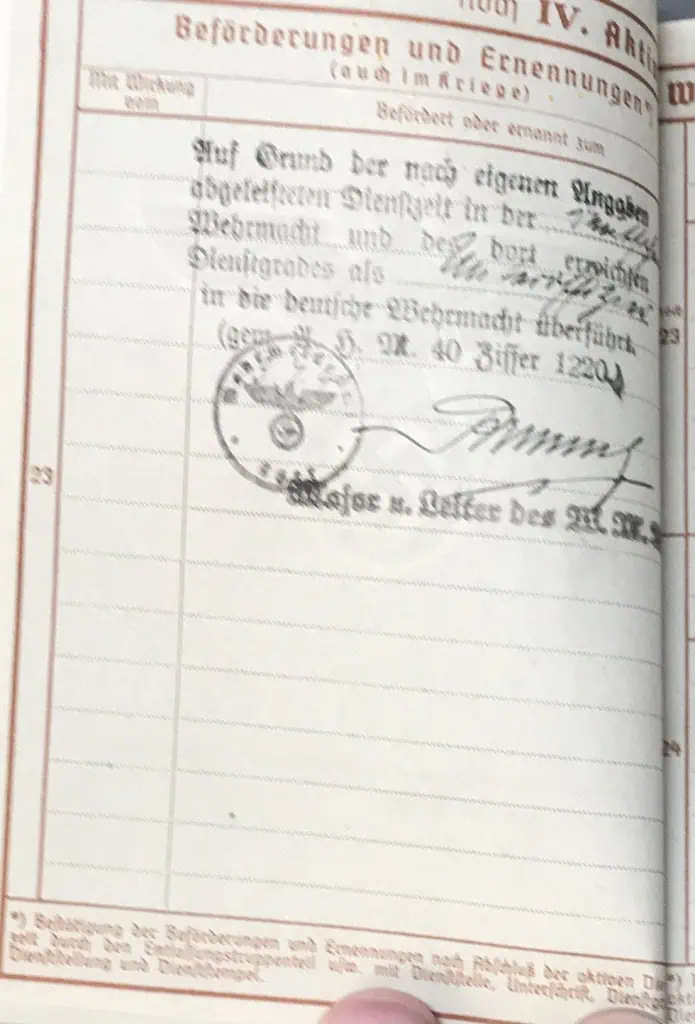 noch IV. Akti
Beförderungen und Ernennungen*)
(auch im Kriege)
Mit Wirkung
vom
Befördert oder ernannt zum
Auf Grund der nach eigenen Angaben
abgeleisteten Dienstzeit in der
Wehrmacht und des dort erreichten
Dienstgrades als
in die deutsche Wehrmacht überführt.
(gem. A. H. M. 40 Ziffer 1220)
Major u. Leiter des W. M.
23
23
24
*) Bestätigung der Beförderungen und Ernennungen nach Abschluß der aktiven Di
zeit durch den Entlassungstruppenteil usw. mit Dienststelle, Unterschrift, Dienstgr
Dienststellung und Dienststempel.